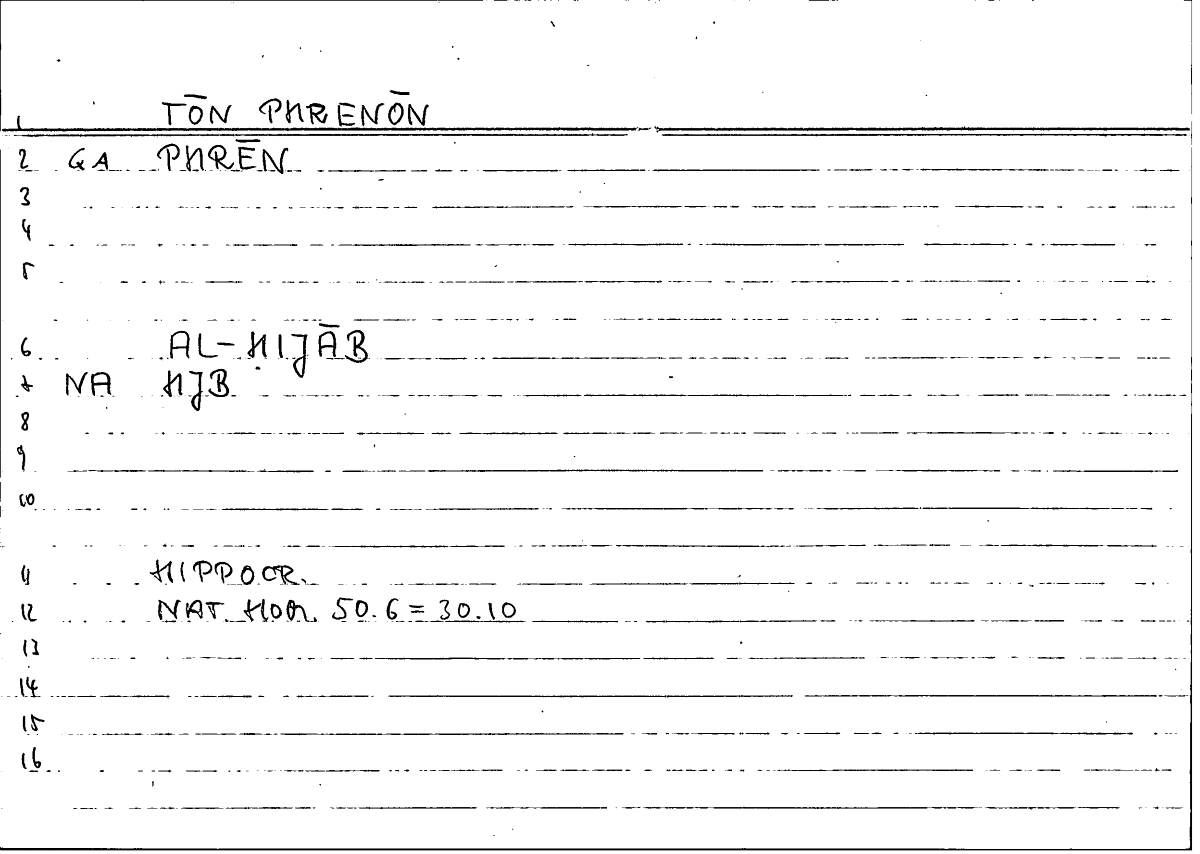 1 TŌN PHRENŌN
2 GA PHRĒN
3
4
5
6 AL-ḤIJĀB
7 NA ḤJB
8
9
10
11 HIPPOCR.
12 NAT. HOM. 50.6 = 30.10
13
14
15
16